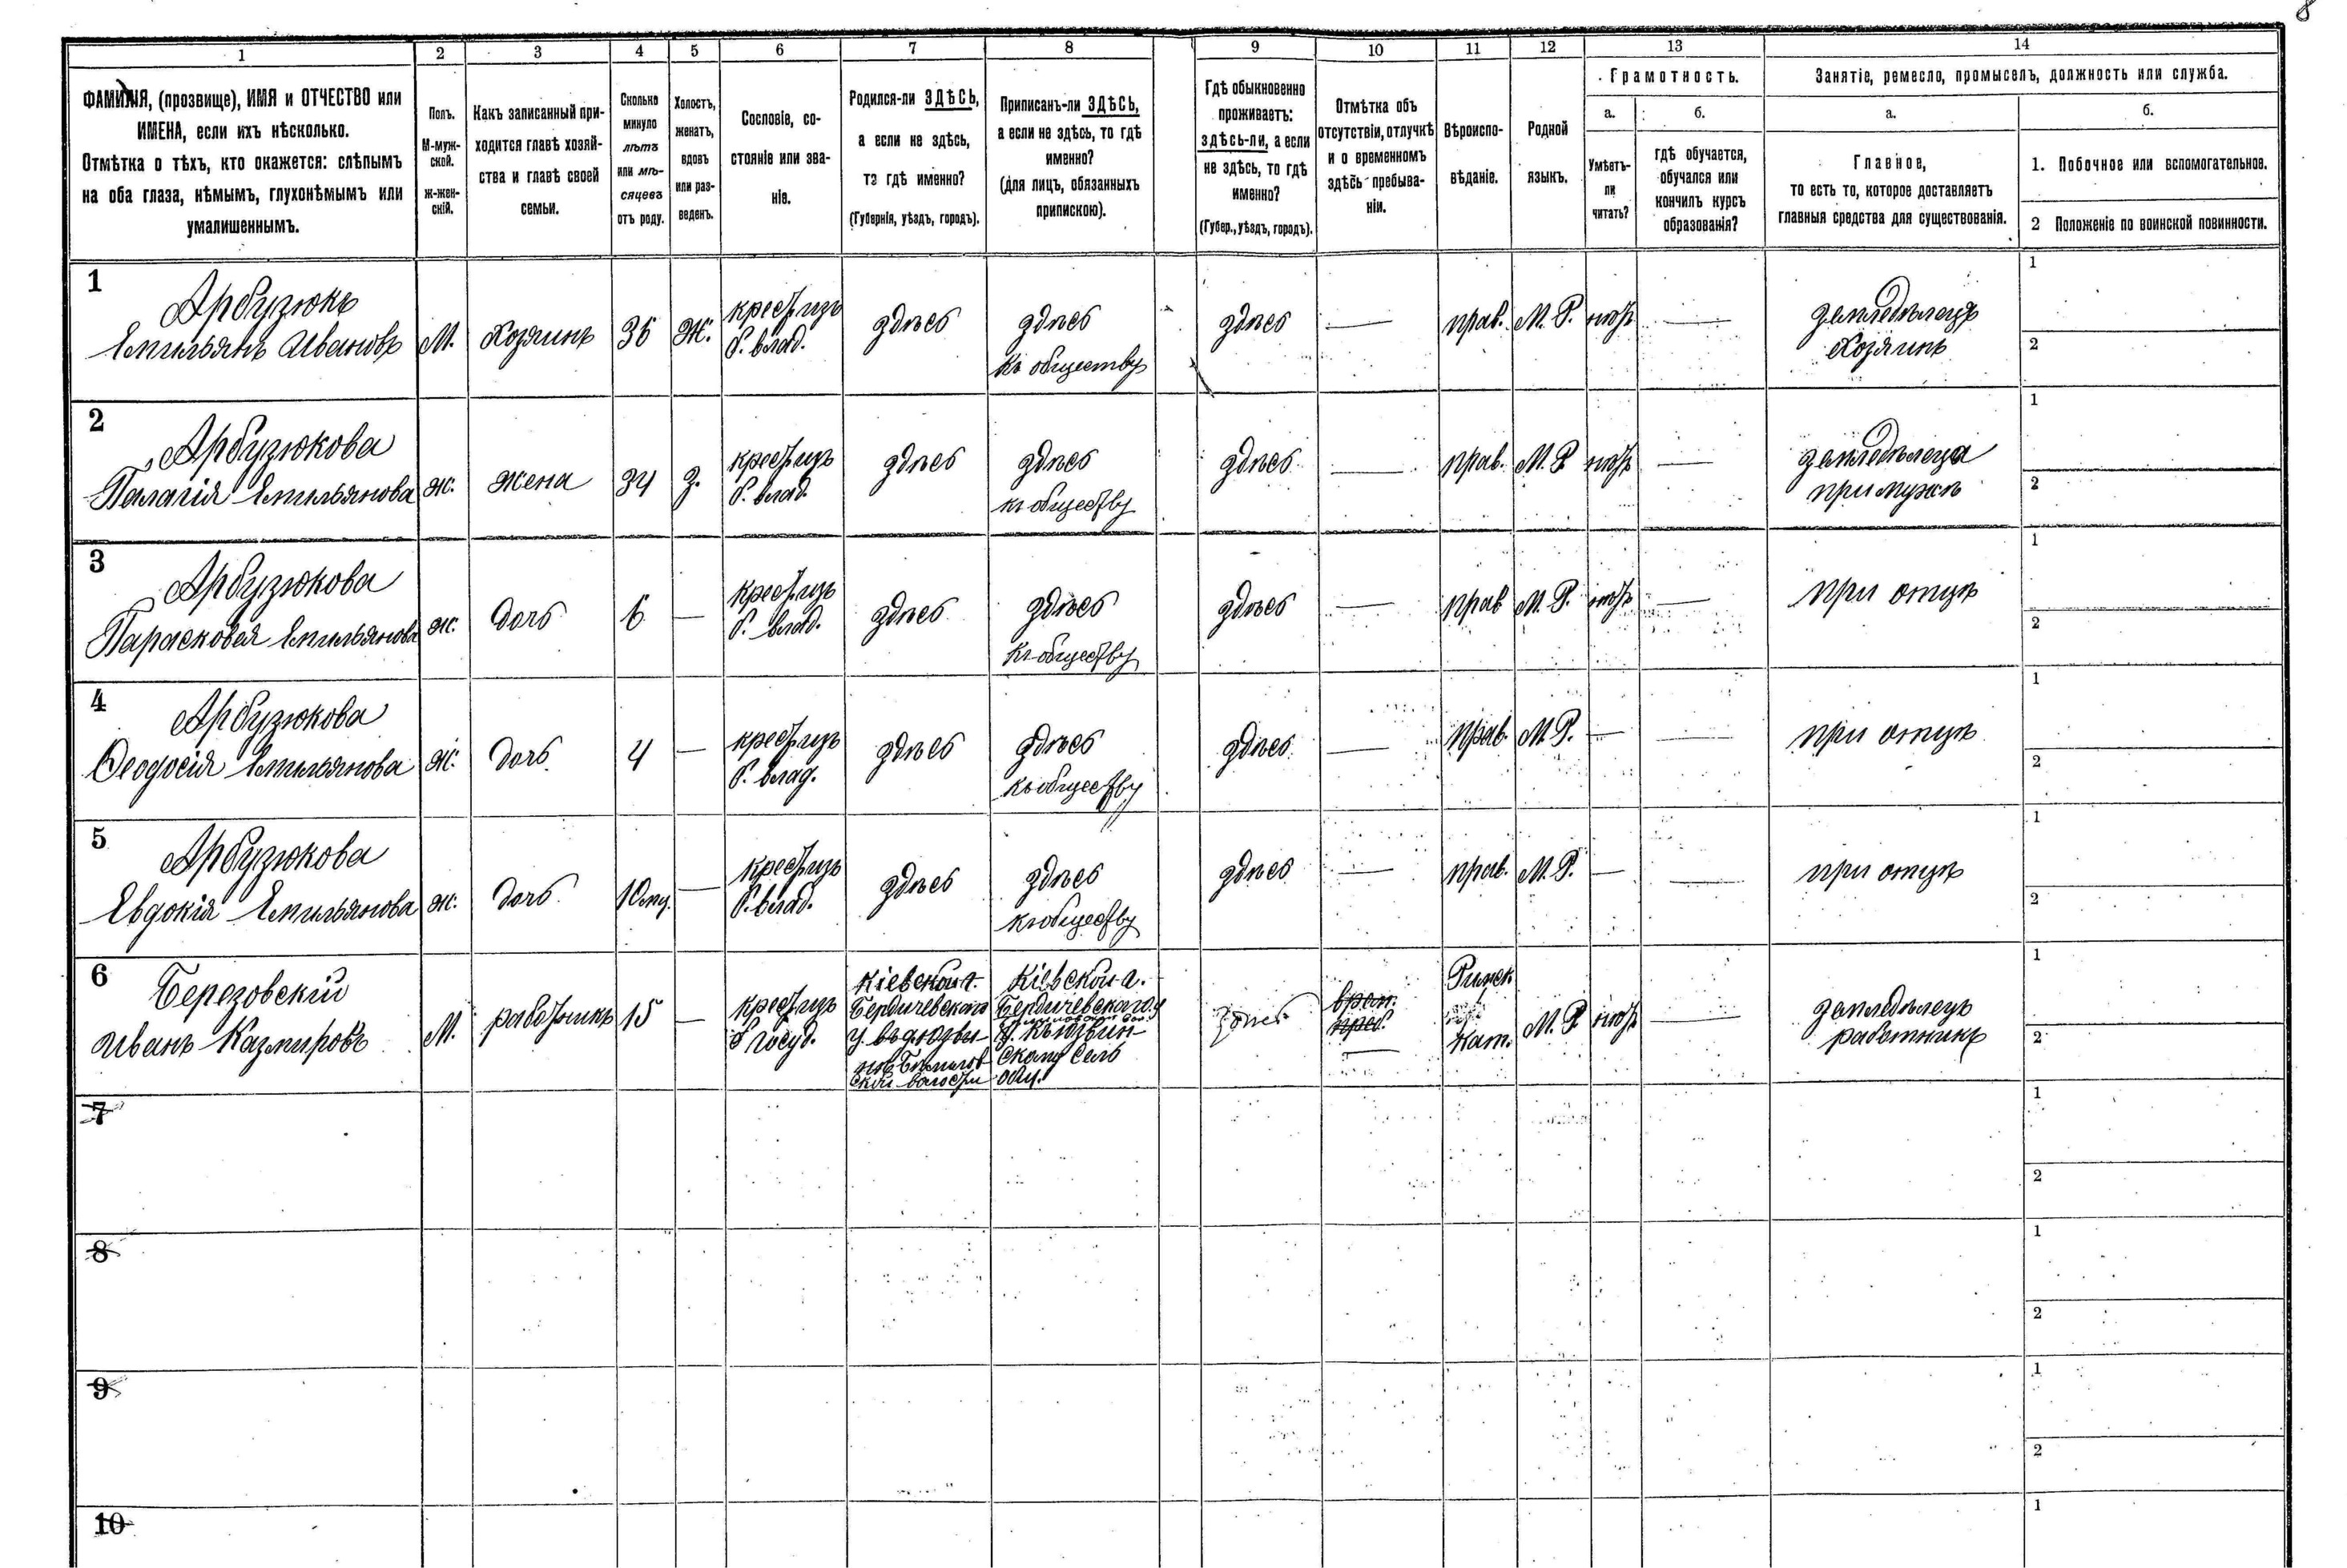 8
1 2 3 4 5 6 7 8 9 10 11 12 13 14
ФАМИЛІЯ, (прозвище), ИМЯ и ОТЧЕСТВО или
ИМЕНА, если ихъ нѣсколько.
Отмѣтка о тѣхъ, кто окажется: слѣпымъ
на оба глаза, нѣмымъ, глухонѣмымъ или
умалишеннымъ.
Полъ.
М-муж-
ской.
ж-жен-
скій.
Какъ записанный при-
ходится главѣ хозяй-
ства и главѣ своей
семьи.
Сколько
минуло
лѣтъ
или мѣ-
сяцевъ
отъ роду.
Холостъ,
женатъ,
вдовъ
или раз-
веденъ.
Сословіе, со-
стояніе или зва-
ніе.
Родился-ли ЗДѢСЬ,
а если не здѣсь,
то гдѣ именно?
(Губернія, уѣздъ, городъ).
Приписанъ-ли ЗДѢСЬ,
а если не здѣсь, то гдѣ
именно?
(для лицъ, обязанныхъ
припискою).
Гдѣ обыкновенно
проживаетъ:
здѣсь-ли, а если
не здѣсь, то гдѣ
именно?
(Губер., уѣздъ, городъ).
Отмѣтка объ
отсутствіи, отлучкѣ
и о временномъ
здѣсь пребыва-
ніи.
Вѣроиспо-
вѣданіе.
Родной
языкъ.
Грамотность.
а.
Умѣетъ-
ли
читать?
б.
гдѣ обучается,
обучался или
кончилъ курсъ
образованія?
Занятіе, ремесло, промыселъ, должность или служба.
а.
Главное,
то есть то, которое доставляетъ
главныя средства для существованія.
б.
1. Побочное или вспомогательное.
2 Положеніе по воинской повинности.
1
Арбузюкъ
Емильянъ Ивановъ
М.
Хозяинъ
36
Ж.
крест. изъ
б. влад.
здѣсь
здѣсь
къ обществу
здѣсь
—
прав.
М. Р.
нѣтъ
—
земледѣлецъ
Хозяинъ
1
2
2
Арбузюкова
Палагія Емильянова
ж.
жена
34
з.
крест. изъ
б. влад.
здѣсь
здѣсь
къ обществу
здѣсь
—
прав.
М. Р.
нѣтъ
—
земледѣлеца
при мужѣ
1
2
3
Арбузюкова
Парасковея Емильянова
ж.
дочь
6
—
крест. изъ
б. влад.
здѣсь
здѣсь
къ обществу
здѣсь
—
прав
М. Р.
нѣтъ
—
при отцѣ
1
2
4
Арбузюкова
Ѳеодосія Емильянова
ж.
дочь
4
—
крест. изъ
б. влад.
здѣсь
здѣсь
къ обществу
здѣсь
—
прав.
М. Р.
—
—
при отцѣ
1
2
5
Арбузюкова
Евдокія Емильянова
ж.
дочь
10 м.
—
крест. изъ
б. влад.
здѣсь
здѣсь
къ обществу
здѣсь
—
прав.
М. Р.
—
—
при отцѣ
1
2
6
Березовскій
Иванъ Казмировъ
М.
работникъ
15
—
крест. изъ
б госуд.
Кіевской г.
Бердичевскаго
у.
ской волости
Кіевской г.
Бердичевскаго
у.
скому сель
общ.
здѣсь
врем.
преб.
—
Римск
кат.
М. Р.
нѣтъ
—
земледѣлецъ
работникъ
1
2
7
1
2
8
1
2
9
1
2
10
1